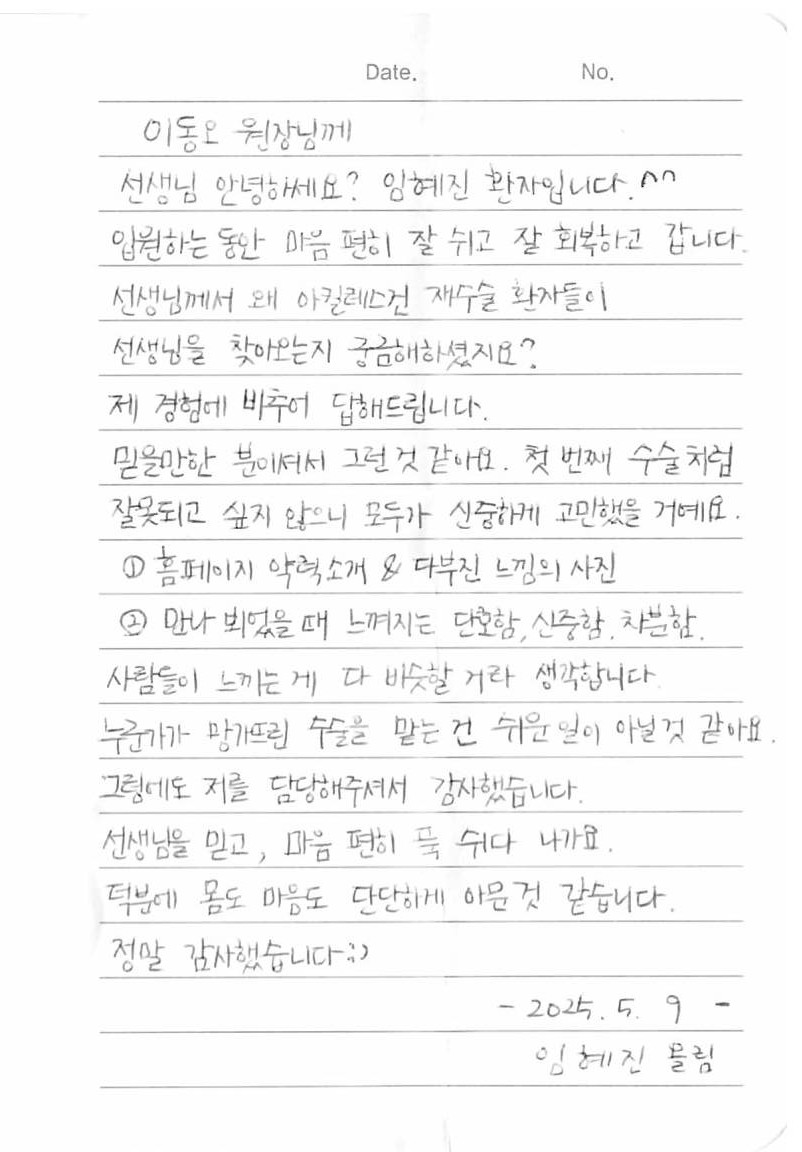 Date. No.
이동오 원장님께
선생님 안녕하세요? 임혜진 환자입니다.^^
입원하는 동안 마음 편히 잘 쉬고 잘 회복하고 갑니다.
선생님께서 왜 아킬레스건 재수술 환자들이
선생님을 찾아오는지 궁금해하셨지요?
제 경험에 비추어 답해드립니다.
믿을만한 분이셔서 그런것 같아요. 첫 번째 수술처럼
잘못되고 싶지 않으니 모두가 신중하게 고민했을 거예요.
① 홈페이지 약력소개 & 다부진 느낌의 사진
② 만나 뵈었을 때 느껴지는 단호함, 신중함, 차분함.
사람들이 느끼는 게 다 비슷할 거라 생각합니다.
누군가가 망가뜨린 수술을 맡는 건 쉬운 일이 아닐것 같아요.
그럼에도 저를 담당해주셔서 감사했습니다.
선생님을 믿고, 마음 편히 푹 쉬다 나가요.
덕분에 몸도 마음도 단단하게 아문것 같습니다.
정말 감사했습니다:)
- 2025. 5. 9 -
임혜진 올림